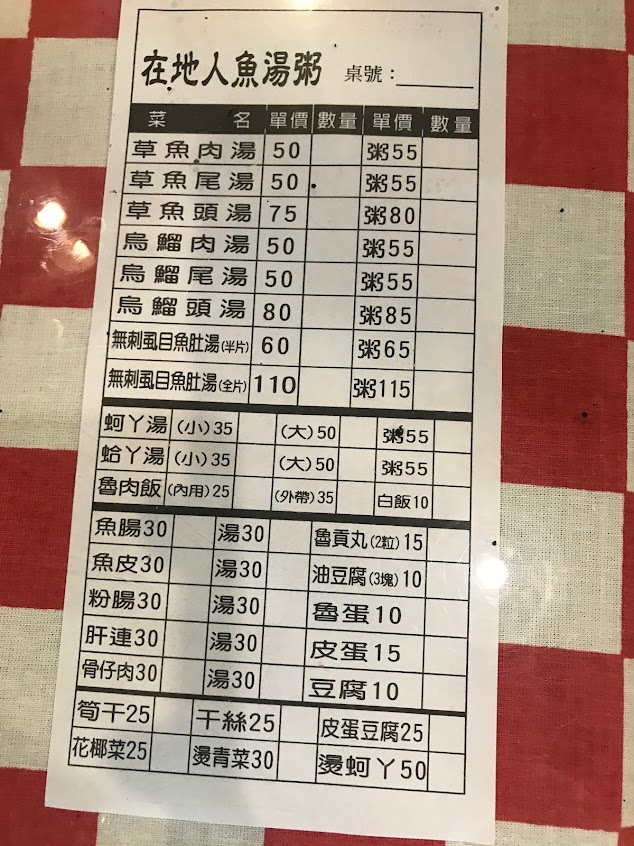 在地人魚湯粥 桌號：
菜名 單價 數量 單價 數量
草魚肉湯 50 粥55
草魚尾湯 50 粥55
草魚頭湯 75 粥80
烏鰡肉湯 50 粥55
烏鰡尾湯 50 粥55
烏鰡頭湯 80 粥85
無刺虱目魚肚湯(半片) 60 粥65
無刺虱目魚肚湯(全片) 110 粥115
蚵ㄚ湯 (小)35 (大)50 粥55
蛤ㄚ湯 (小)35 (大)50 粥55
魯肉飯 (內用)25 (外帶)35 白飯10
魚腸30 湯30 魯貢丸(2粒)15
魚皮30 湯30 油豆腐(3塊)10
粉腸30 湯30 魯蛋10
肝連30 湯30 皮蛋15
骨仔肉30 湯30 豆腐10
筍干25 干絲25 皮蛋豆腐25
花椰菜25 燙青菜30 燙蚵ㄚ50